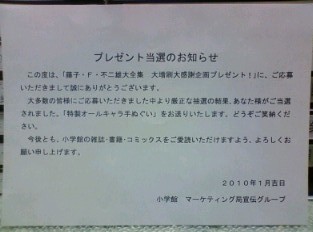 プレゼント当選のお知らせ
この度は、「藤子・F・不二雄大全集　大増刷大感謝企画プレゼント！」に、ご応募
いただきまして誠にありがとうございます。
大多数の皆様にご応募いただきました中より厳正な抽選の結果、あなた様がご当選
されました。「特製オールキャラ手ぬぐい」をお送りいたします。どうぞご笑納くだ
さい。
今後とも、小学館の雑誌・書籍・コミックスをご愛読いただけますよう、よろしくお
願い申し上げます。
２０１０年１月吉日
小学館　マーケティング局宣伝グループ